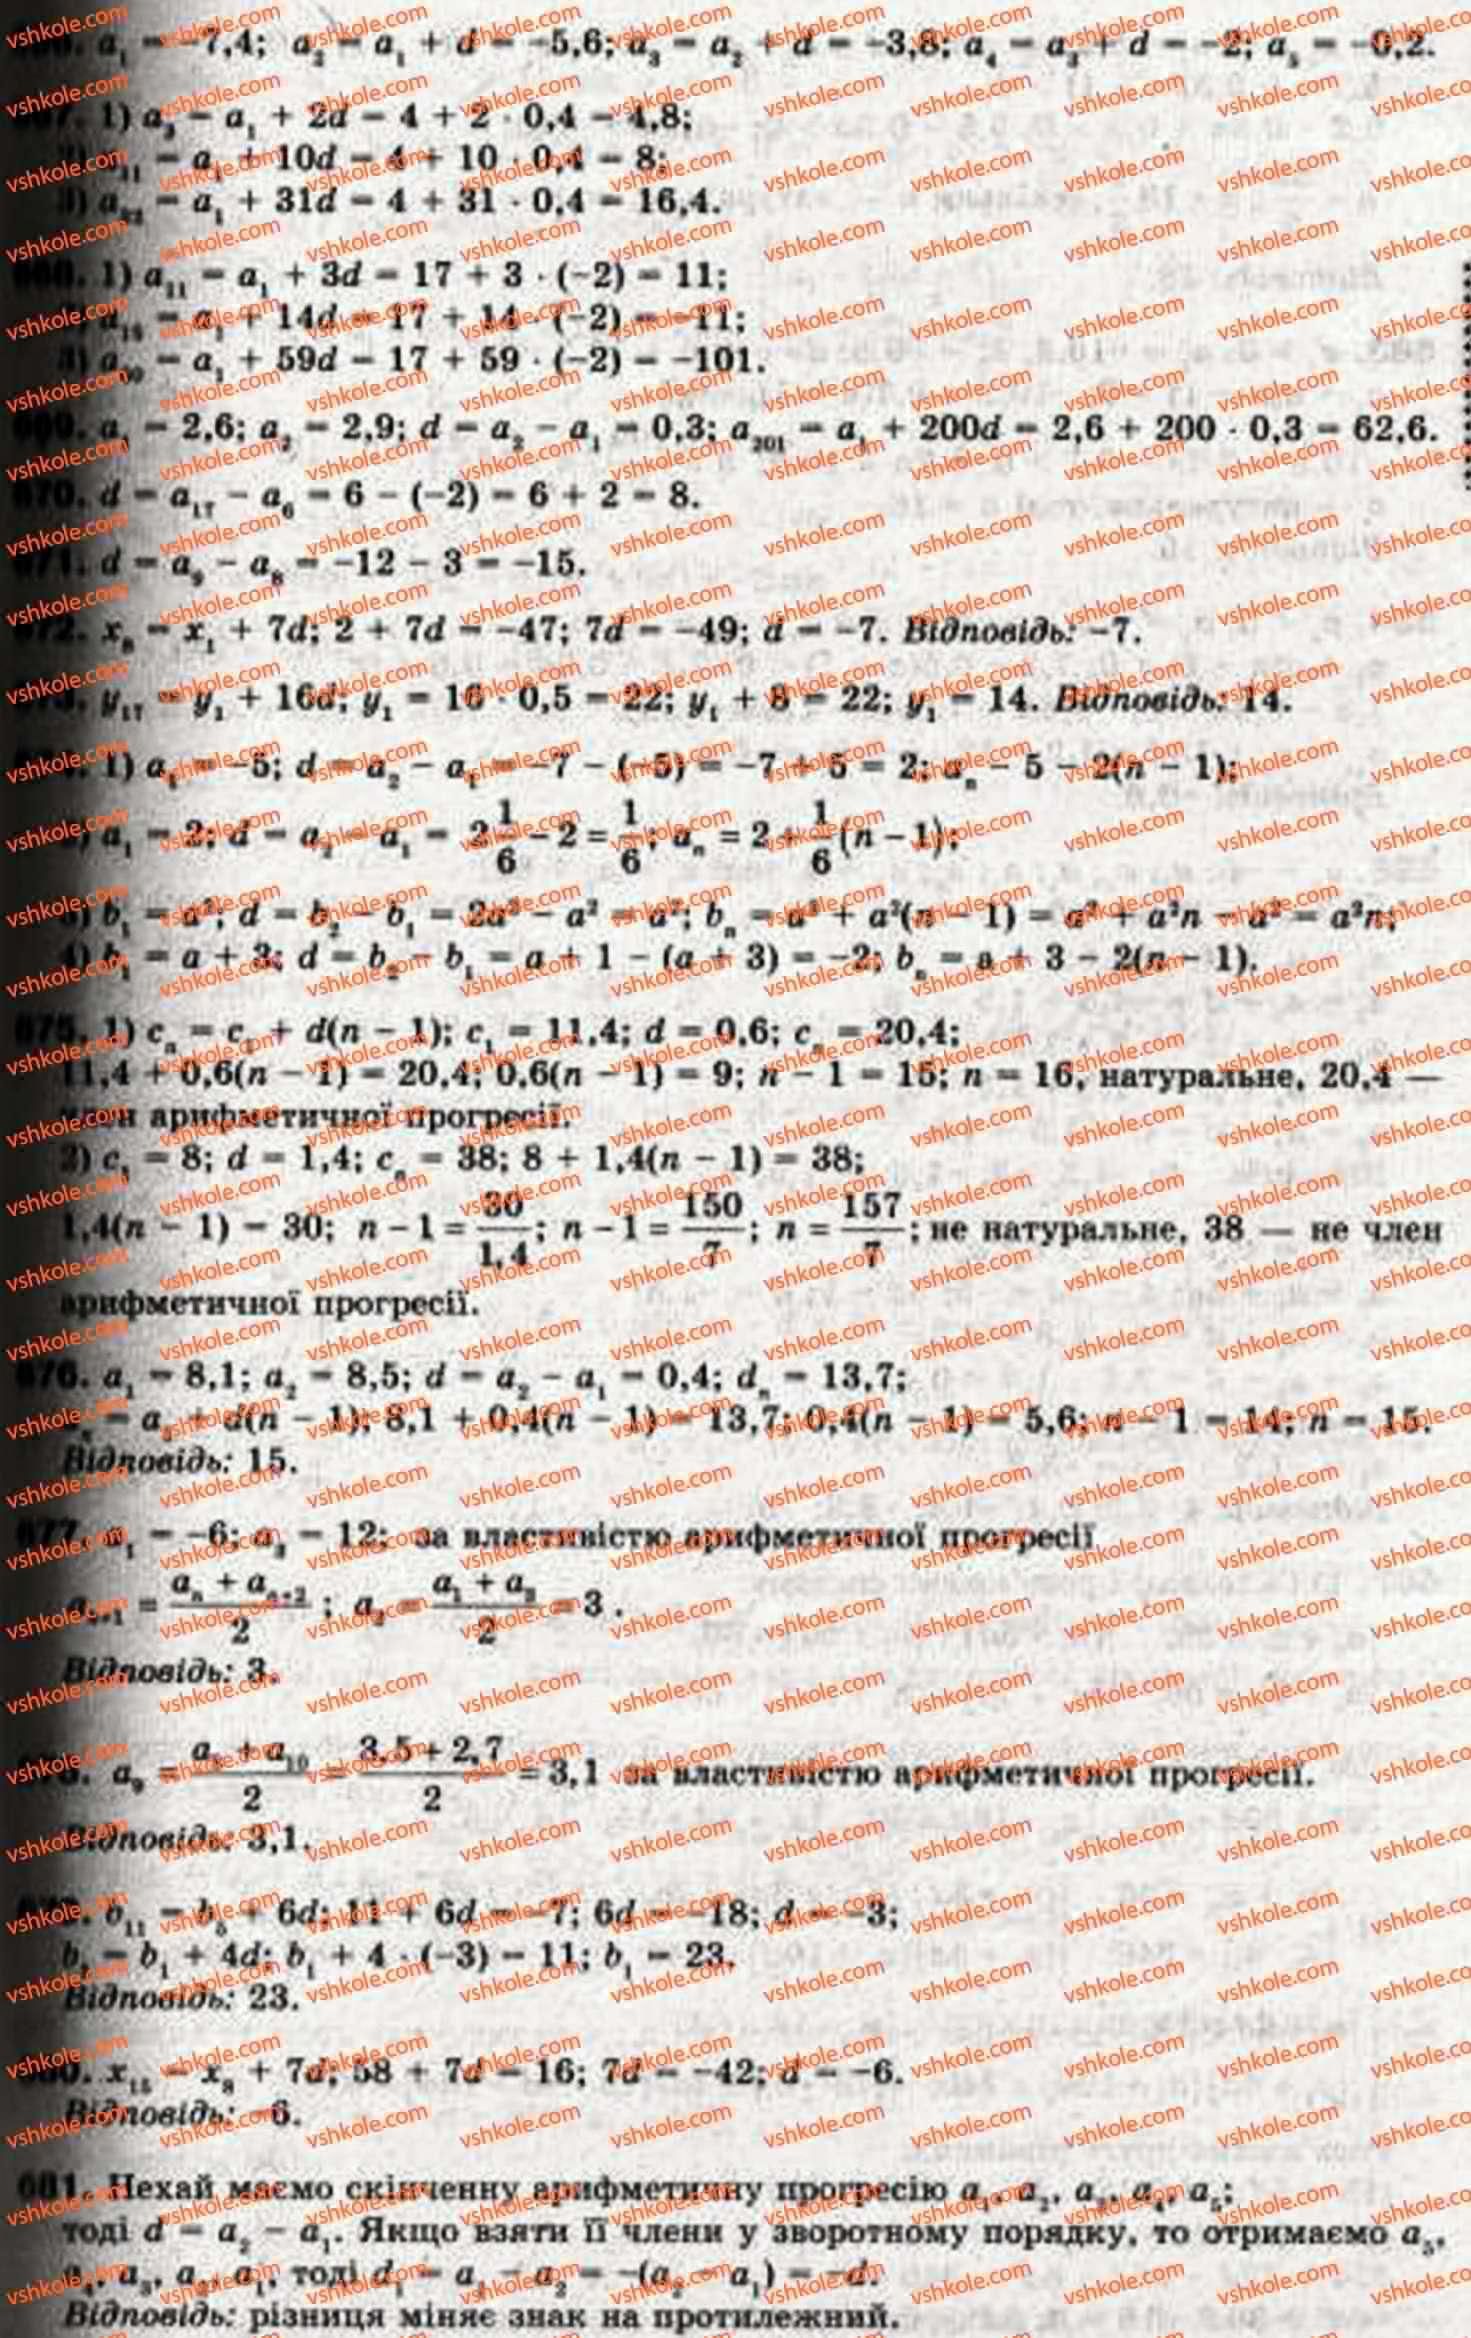 666. a₁ = −7,4; a₂ = a₁ + d = −5,6; a₃ = a₂ + d = −3,8; a₄ = a₃ + d = −2; a₅ = −0,2.
667. 1) a₃ = a₁ + 2d = 4 + 2 · 0,4 = 4,8;
2) a₁₁ = a₁ + 10d = 4 + 10 · 0,4 = 8;
3) a₃₂ = a₁ + 31d = 4 + 31 · 0,4 = 16,4.
668. 1) a₁₁ = a₁ + 3d = 17 + 3 · (−2) = 11;
2) a₁₅ = a₁ + 14d = 17 + 14 · (−2) = −11;
3) a₆₀ = a₁ + 59d = 17 + 59 · (−2) = −101.
669. a₁ = 2,6; a₂ = 2,9; d = a₂ − a₁ = 0,3; a₂₀₁ = a₁ + 200d = 2,6 + 200 · 0,3 = 62,6.
670. d = a₁₇ − a₆ = 6 − (−2) = 6 + 2 = 8.
671. d = a₉ − a₈ = −12 − 3 = −15.
672. x₈ = x₁ + 7d; 2 + 7d = −47; 7d = −49; d = −7. Відповідь: −7.
673. y₁₇ = y₁ + 16d; y₁ = 16 · 0,5 = 22; y₁ + 8 = 22; y₁ = 14. Відповідь: 14.
674. 1) a₁ = −5; d = a₂ − a₁ = −7 − (−5) = −7 + 5 = 2; aₙ − 5 − 2(n − 1);
2) a₁ = 2; d = a₂ − a₁ = 2 1/6 − 2 = 1/6; aₙ = 2 + 1/6 (n − 1);
3) b₁ = a²; d = b₂ − b₁ = 2a² − a² = a²; bₙ = a² + a²(n − 1) = a² + a²n − a² = a²n;
4) b₁ = a + 3; d = b₂ − b₁ = a + 1 − (a + 3) = −2; bₙ = a + 3 − 2(n − 1).
675. 1) cₙ = c₁ + d(n − 1); c₁ = 11,4; d = 0,6; cₙ = 20,4;
11,4 + 0,6(n − 1) = 20,4; 0,6(n − 1) = 9; n − 1 = 15; n = 16, натуральне, 20,4 —
член арифметичної прогресії.
2) c₁ = 8; d = 1,4; cₙ = 38; 8 + 1,4(n − 1) = 38;
1,4(n − 1) = 30; n − 1 = 30/1,4; n − 1 = 150/7; n = 157/7; не натуральне, 38 — не член
арифметичної прогресії.
676. a₁ = 8,1; a₂ = 8,5; d = a₂ − a₁ = 0,4; dₙ = 13,7;
aₙ = a₁ + d(n − 1); 8,1 + 0,4(n − 1) = 13,7; 0,4(n − 1) = 5,6; n − 1 = 14; n = 15.
Відповідь: 15.
677. a₁ = −6; a₃ = 12; за властивістю арифметичної прогресії
aₙ₊₁ = (aₙ + aₙ₊₂)/2; a₂ = (a₁ + a₃)/2 = 3.
Відповідь: 3.
678. a₉ = (a₈ + a₁₀)/2 = (3,5 + 2,7)/2 = 3,1 за властивістю арифметичної прогресії.
Відповідь: 3,1.
679. b₁₁ = b₅ + 6d; 11 + 6d = −7; 6d = −18; d = −3;
b₅ = b₁ + 4d; b₁ + 4 · (−3) = 11; b₁ = 23.
Відповідь: 23.
680. x₁₅ = x₈ + 7d; 58 + 7d = 16; 7d = −42; d = −6.
Відповідь: −6.
681. Нехай маємо скінченну арифметичну прогресію a₁, a₂, a₃, a₄, a₅;
тоді d = a₂ − a₁. Якщо взяти її члени у зворотному порядку, то отримаємо a₅,
a₄, a₃, a₂, a₁, тоді d₁ = a₁ − a₂ = −(a₂ − a₁) = −d.
Відповідь: різниця міняє знак на протилежний.